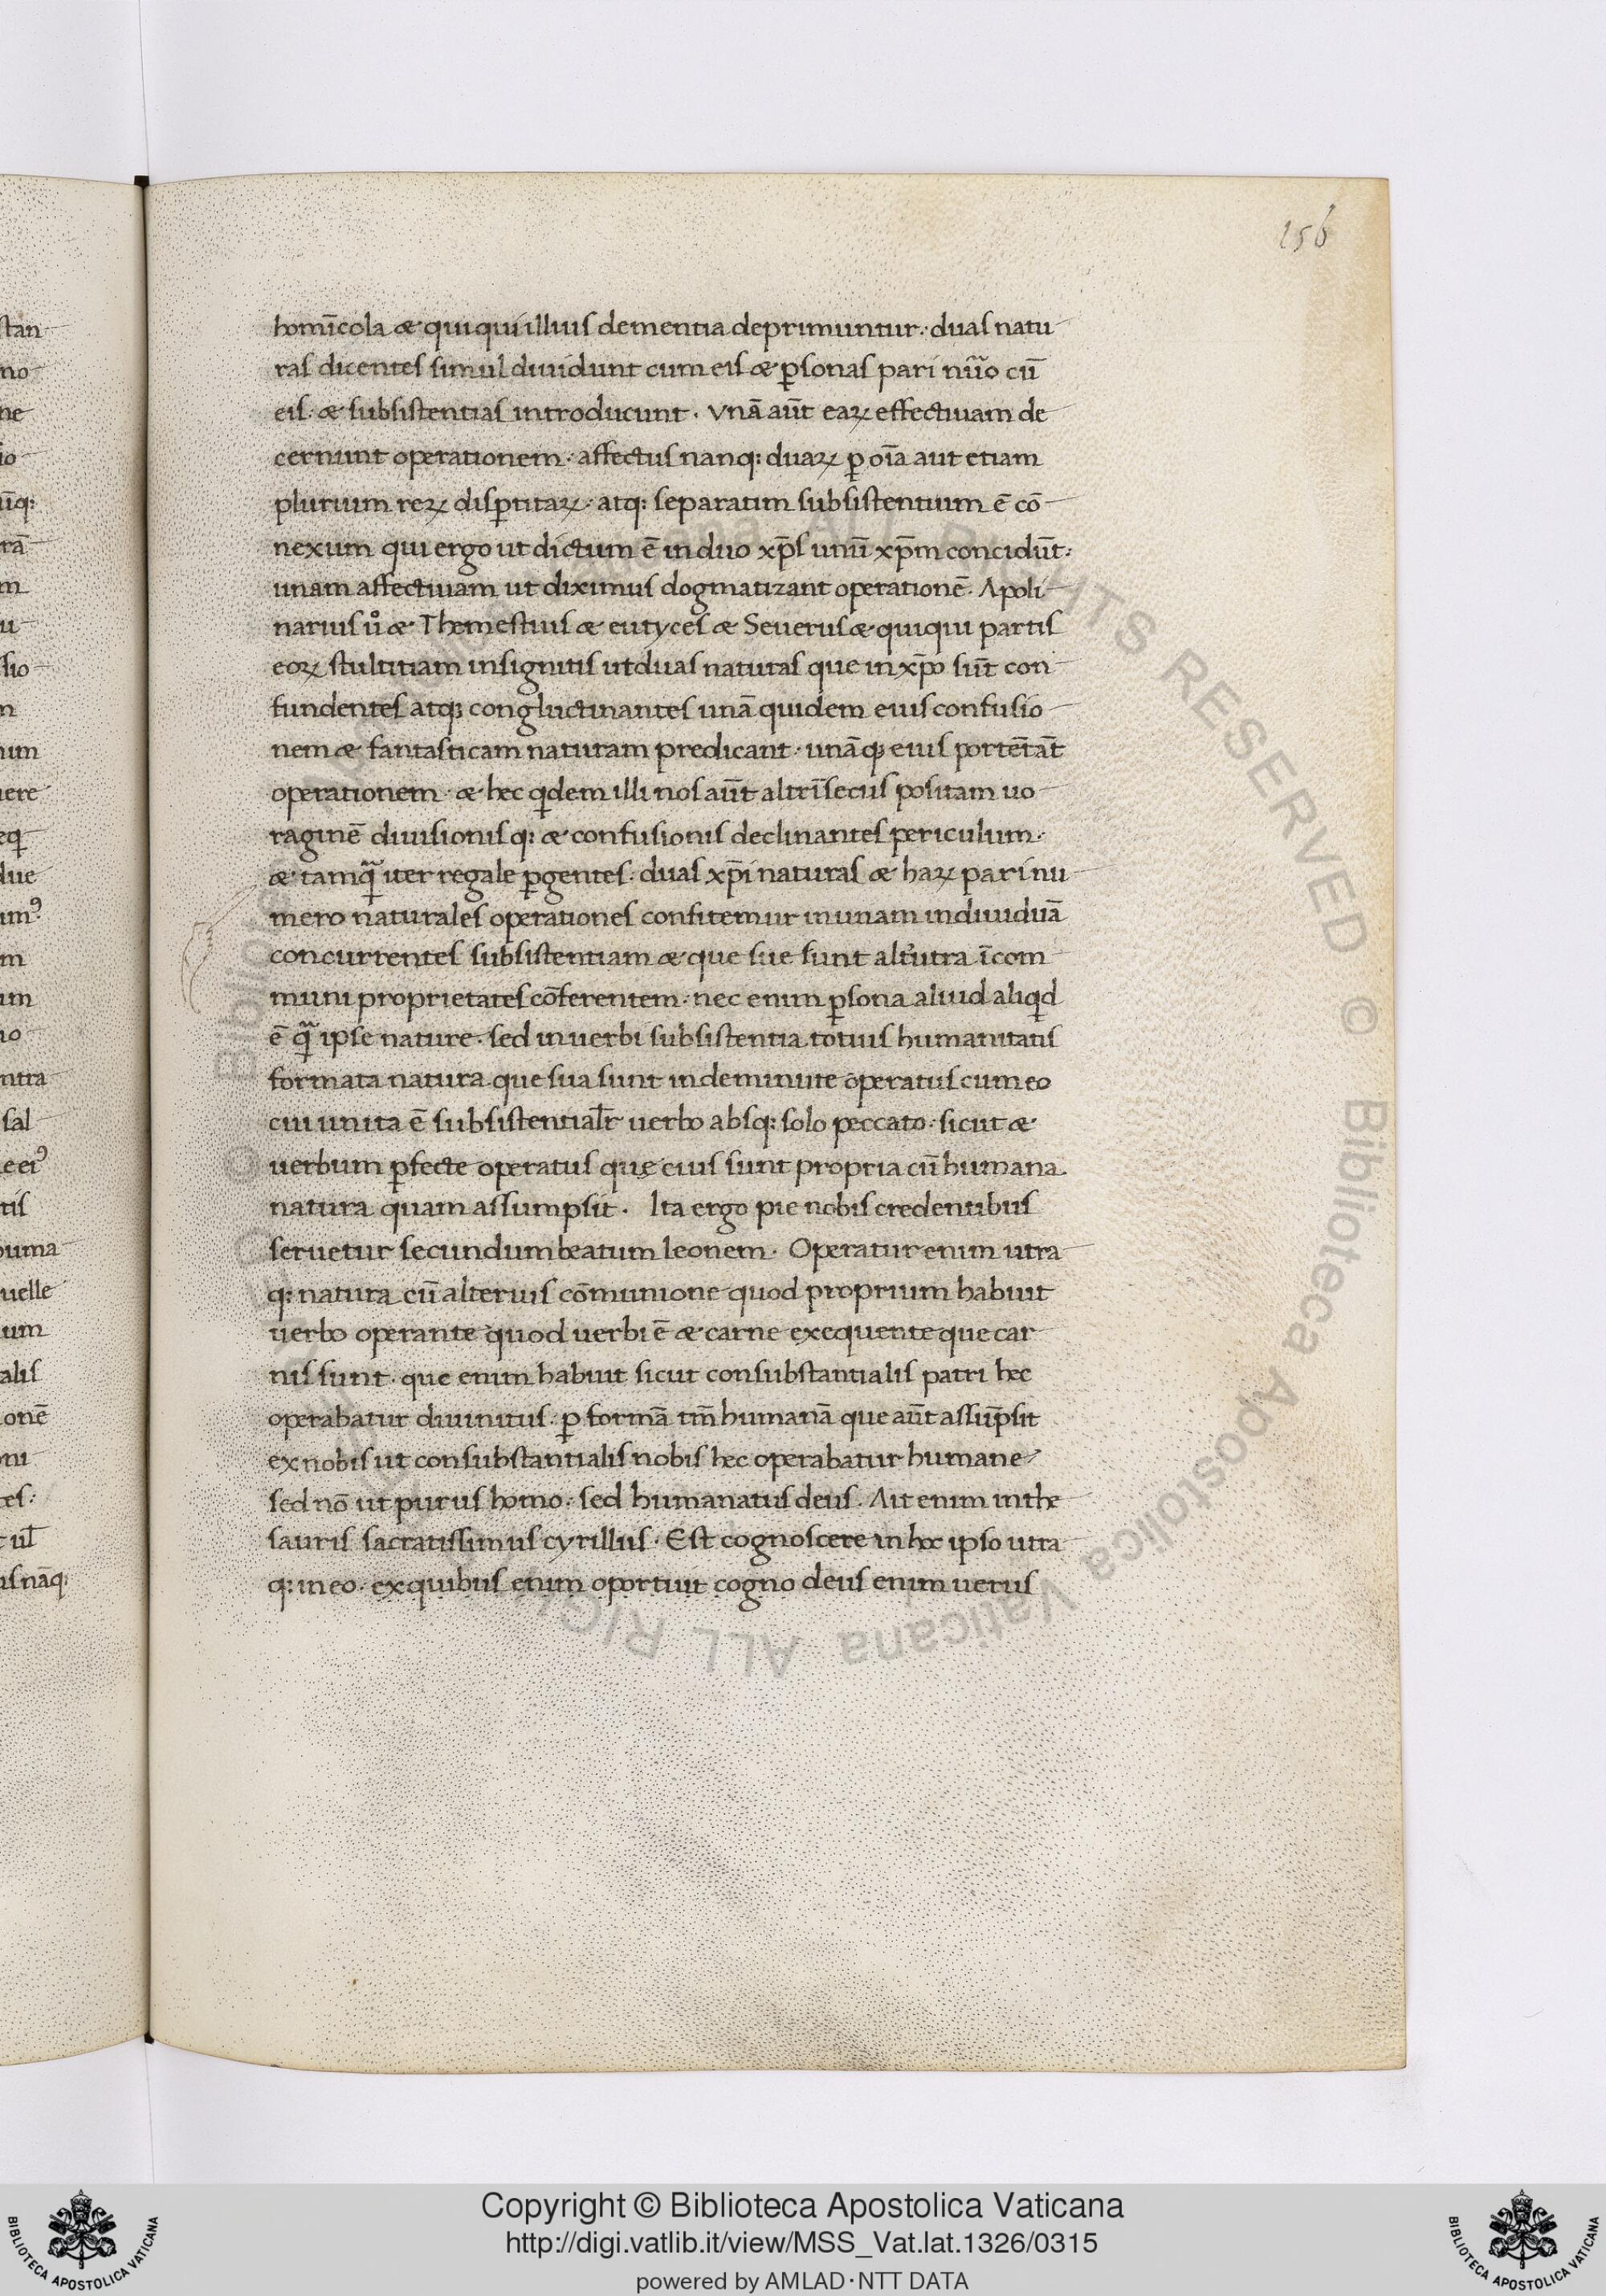 156
homĩcola æ quiqui illius dementia deprimuntur· duas natu
ras dicentes simul diuidunt cum eis æ p̲sonas pari nũo cū
eis· æ subsistentias introducunt· vnā aūt eaꝝ effectiuam de
cernunt operationem· affectus nanq: duaꝝ ꝑ oīa aut etiam
plurium reꝝ disꝑtitaꝝ· atq: separatim subsistentium ē cō
nexum qui ergo ut dictum ē in duo xp̄s unū xp̄m concidūt:
unam affectiuam ut diximus dogmatizant operationē. Apoli
narius uͦ æ Themestius æ eutyces æ Seuerus æ quiqui partis
eoꝝ stultitiam insignitis ut duas naturas que in xp̄o sūt con
fundentes atqꝫ congluctinantes unā quidem eius confusio
nem æ fantasticam naturam predicant· unāqꝫ eius portētāt
operationem· æ hec qͥdem illi nos aūt altrīsecus positam uo
raginē diuisionis q: æ confusionis declinantes periculum·
æ tamqᷓ iter regale ꝑgentes: duas xp̄i naturas æ haꝝ pari nu
mero naturales operationes confitemur in unam indiuiduā
concurrentes subsistentiam æ que sue sunt alt̓utra īcom
muni proprietates cōferentem· nec enim ꝑsona aliud aliqͥd
ē qᷓ ipse nature· sed in uerbi subsistentia totius humanitatis
formata natura que sua sunt indeminute operatus cum eo
cui unita ē subsistentialr̄ uerbo absq: solo peccato· sicut æ
uerbum ꝑfecte operatus quę eius sunt propria cū humana
natura quam assumpsit· Ita ergo pie nobis credentibus
seruetur secundum beatum leonem· Operatur enim utra
q: natura cū alterius cōmunione quod proprium habuit
uerbo operante quod uerbi ē æ carne exequente que car
nis sunt· que enim habuit sicut consubstantialis patri hec
operabatur diuinitus· ꝑ formā tm̄ humanā que aūt assūpsit
ex nobis ut consubstantialis nobis hec operabatur humane
sed nō ut purus homo· sed humanatus deus. Ait enim in the
sauris sacratissimus cyrillus· Est cognoscere in hoc ipso utra
q: in eo· ex quibus enim oportuit cogno deus enim uerus
Copyright © Biblioteca Apostolica Vaticana
http://digi.vatlib.it/view/MSS_Vat.lat.1326/0315
powered by AMLAD·NTT DATA
BIBLIOTECA APOSTOLICA VATICANA
BIBLIOTECA APOSTOLICA VATICANA